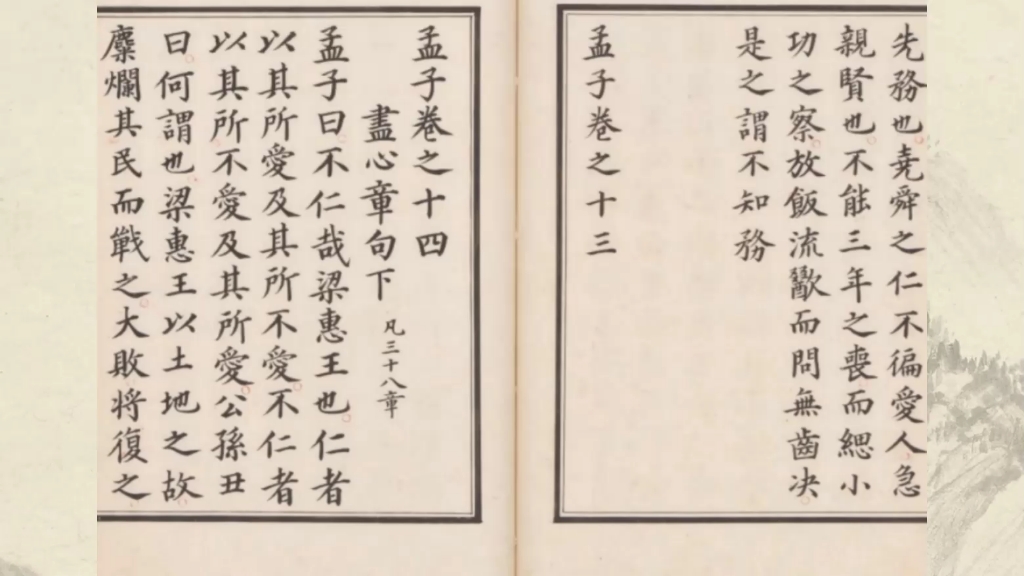 先務也堯舜之仁不徧愛人急
親賢也不能三年之喪而緦小
功之察放飯流歠而問無齒决
是之謂不知務
孟子卷之十三
孟子卷之十四
盡心章句下 凡三十八章
孟子曰不仁哉梁惠王也仁者
以其所愛及其所不愛不仁者
以其所不愛及其所愛公孫丑
曰何謂也梁惠王以土地之故
糜爛其民而戰之大敗将復之